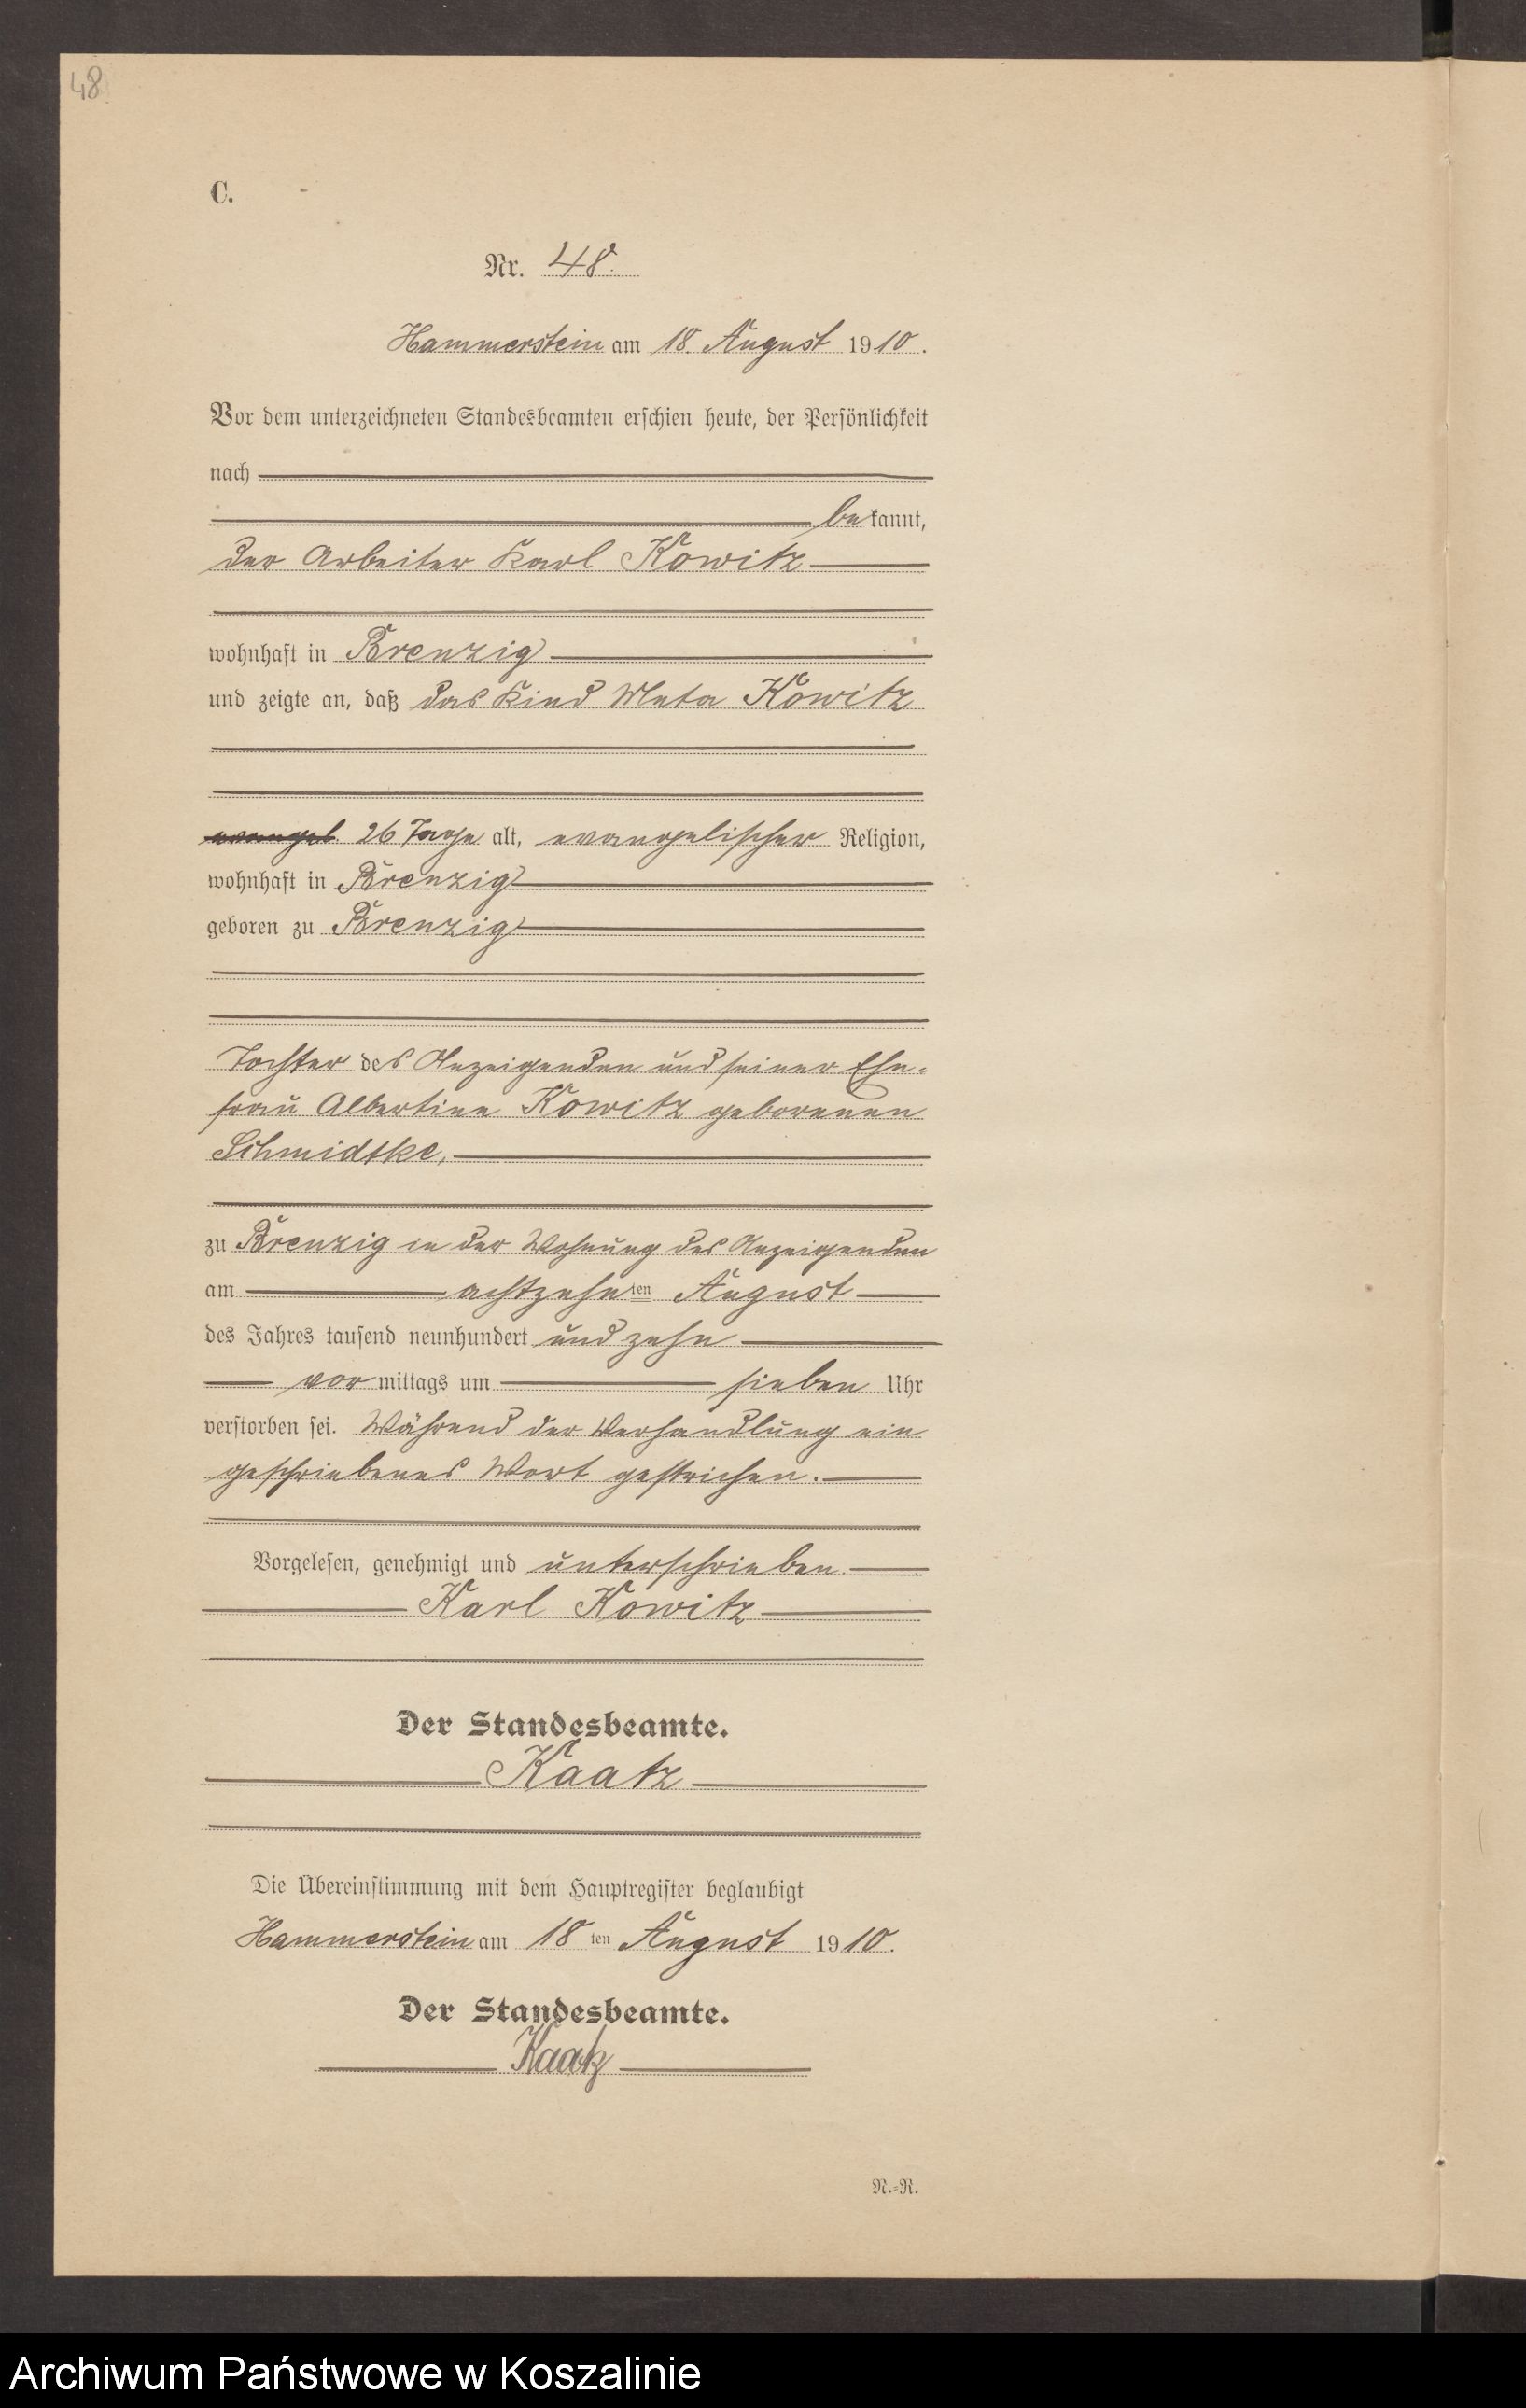 48
C.
Nr. 48.
Hammerstein am 18. August 1910.
Vor dem unterzeichneten Standesbeamten erschien heute, der Persönlichkeit
nach
bekannt,
der Arbeiter Karl Kowitz
wohnhaft in Brenzig
und zeigte an, daß das Kind Meta Kowitz
evangel. 26 Tage alt, evangelischer Religion,
wohnhaft in Brenzig
geboren zu Brenzig
Tochter des Anzeigenden und seiner Ehe-
frau Albertine Kowitz geborenen
Schmidtke,
zu Brenzig in der Wohnung des Anzeigenden
am achtzehnten August
des Jahres tausend neunhundert und zehn
vormittags um sieben Uhr
verstorben sei. Während der Verhandlung ein
geschriebenes Wort gestrichen.
Vorgelesen, genehmigt und unterschrieben.
Karl Kowitz
Der Standesbeamte.
Kaatz
Die Übereinstimmung mit dem Hauptregister beglaubigt
Hammerstein am 18ten August 1910.
Der Standesbeamte.
Kaatz
N.-R.
Archiwum Państwowe w Koszalinie